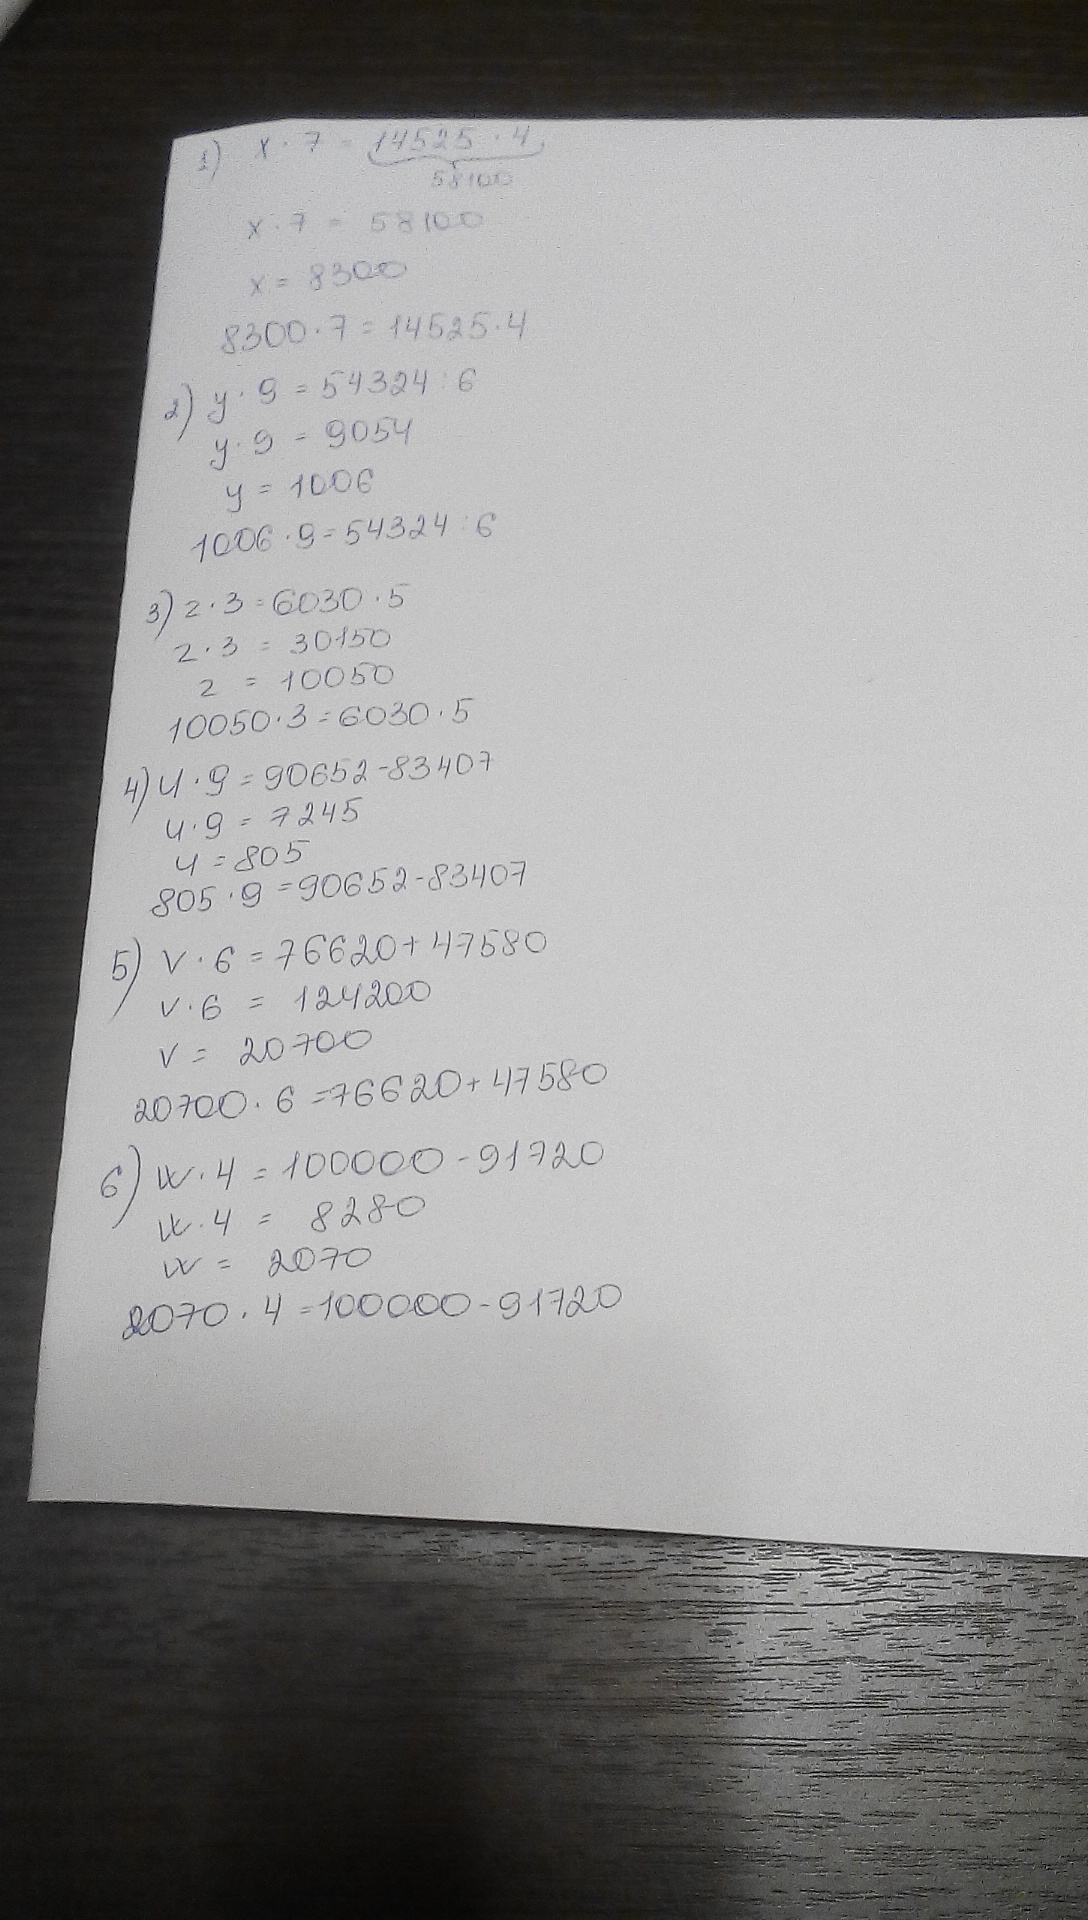 1) x · 7 = 14525 · 4
58100
x · 7 = 58100
x = 8300
8300 · 7 = 14525 · 4
2) y · 9 = 54324 : 6
y · 9 = 9054
y = 1006
1006 · 9 = 54324 : 6
3) z · 3 = 6030 · 5
z · 3 = 30150
z = 10050
10050 · 3 = 6030 · 5
4) u · 9 = 90652 - 83407
u · 9 = 7245
u = 805
805 · 9 = 90652 - 83407
5) v · 6 = 76620 + 47580
v · 6 = 124200
v = 20700
20700 · 6 = 76620 + 47580
6) w · 4 = 100000 - 91720
w · 4 = 8280
w = 2070
2070 · 4 = 100000 - 91720